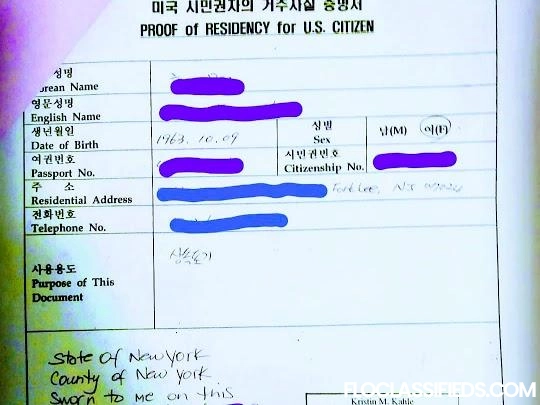 미국 시민권자의 거주사실 증명서
PROOF of RESIDENCY for U.S. CITIZEN
성명
orean Name
영문성명
English Name
생년월일 1963. 10. 09 성별 남(M) 여(F)
Date of Birth Sex
여권번호 시민권번호
Passport No. Citizenship No.
주 소
Residential Address Fort Lee, NJ 07024
전화번호
Telephone No.
상속포기
사용용도
Purpose of This
Document
State of New York
County of New York
Sworn to me on this
Kristin M. Kahle
FLOCLASSIFIEDS.COM